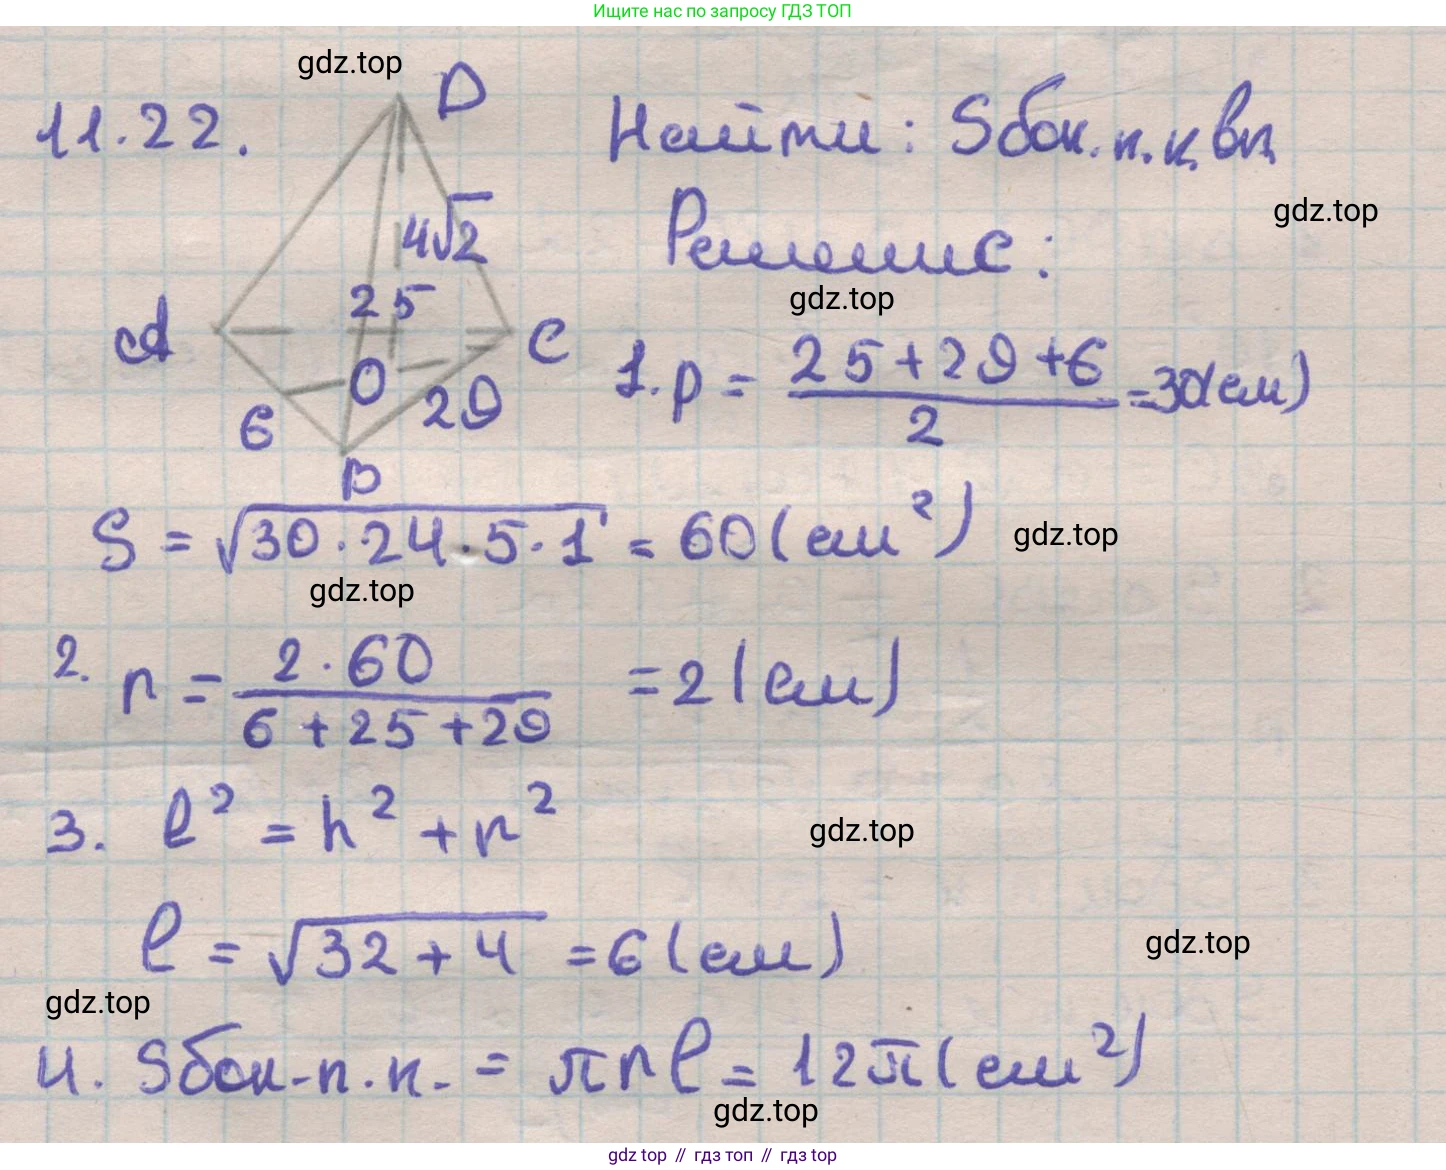 Ищите нас по запросу ГДЗ ТОП
gdz.top
11.22.
D
Найти: Sбок.п.к. вп.
gdz.top
4√2
Решение:
gdz.top
25
A
C
O
1. p = (25+29+6)/2 = 30(см)
6
29
B
S = √(30·24·5·1) = 60(см²)
gdz.top
gdz.top
2. r = (2·60)/(6+25+29) = 2(см)
3. l² = h² + r²
gdz.top
l = √(32+4) = 6(см)
gdz.top
gdz.top
4. Sбок.п.к. = πrl = 12π(см²)
gdz.top
gdz top // гдз топ // гдз top